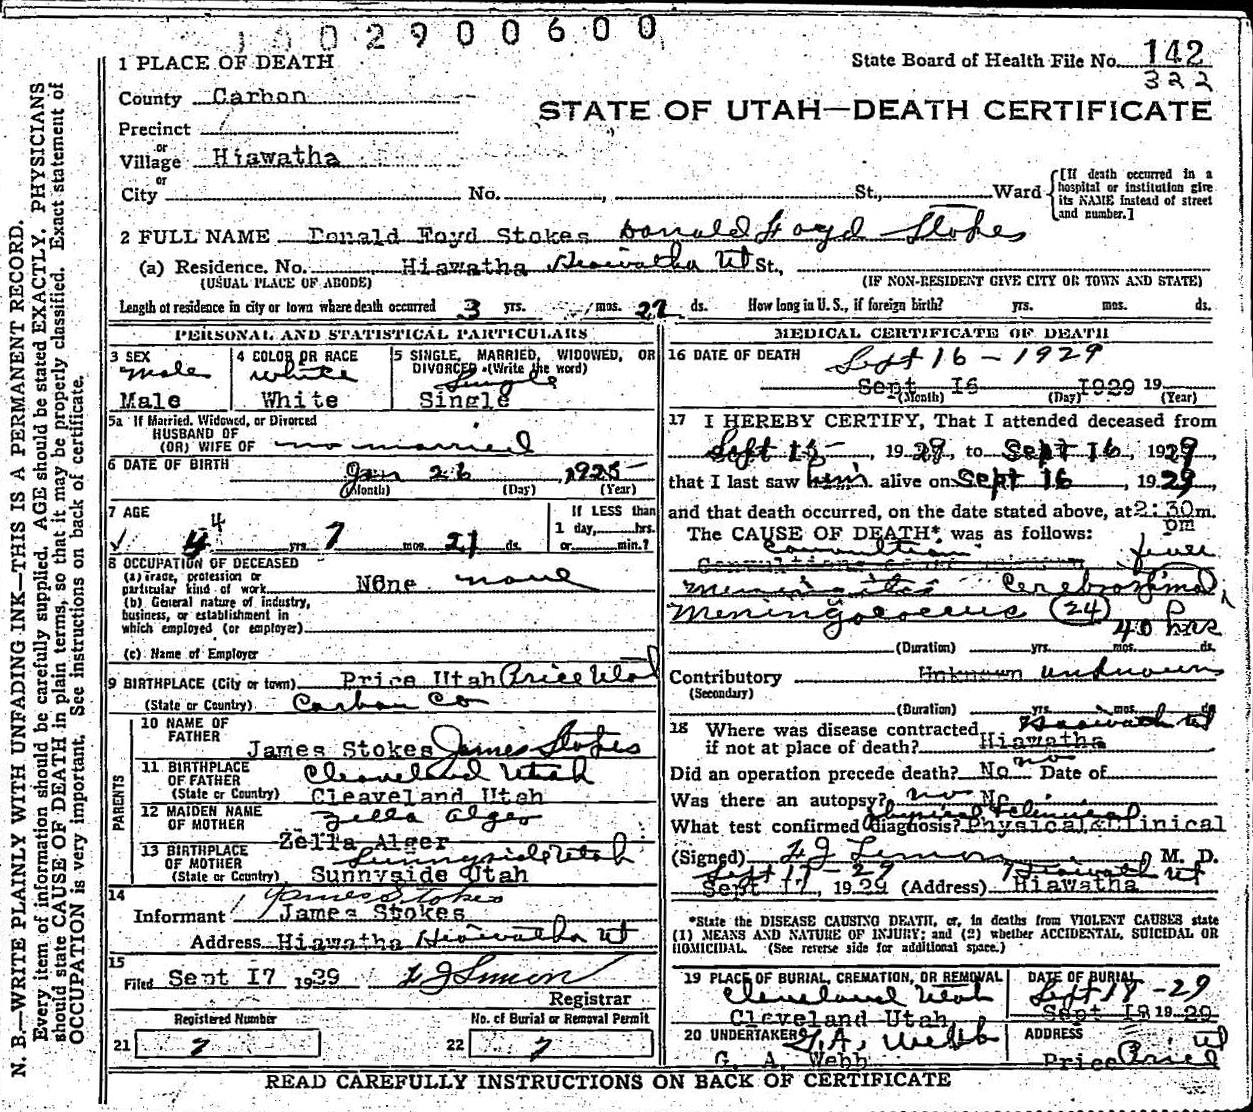 1 0 0 2 9 0 0 6 0 0
1 PLACE OF DEATH
State Board of Health File No. 142
322
County Carbon
STATE OF UTAH—DEATH CERTIFICATE
Precinct
or
Village Hiawatha
or
City No. , St., Ward
[If death occurred in a hospital or institution give its NAME instead of street and number.]
2 FULL NAME Donald Foyd Stokes Donald Foyd Stokes
(a) Residence. No. Hiawatha Hiawatha Ut St.,
(USUAL PLACE OF ABODE) (IF NON-RESIDENT GIVE CITY OR TOWN AND STATE)
Length of residence in city or town where death occurred 3 yrs. mos. 27 ds. How long in U. S., if foreign birth? yrs. mos. ds.
PERSONAL AND STATISTICAL PARTICULARS
3 SEX
Male
Male
4 COLOR OR RACE
White
White
5 SINGLE, MARRIED, WIDOWED, OR
DIVORCED (Write the word)
Single
Single
5a If Married, Widowed, or Divorced
HUSBAND OF
(OR) WIFE OF no married
6 DATE OF BIRTH
Jan 26, 1925
(Month) (Day) (Year)
7 AGE
4
4 yrs. 7 mos. 21 ds.
If LESS than
1 day, hrs.
or min.?
8 OCCUPATION OF DECEASED
(a) Trade, profession or
particular kind of work NOne none
(b) General nature of industry,
business, or establishment in
which employed (or employer)
(c) Name of Employer
9 BIRTHPLACE (City or town) Price Utah Price Utah
(State or Country) Carbon Co
PARENTS
10 NAME OF
FATHER
James Stokes James Stokes
11 BIRTHPLACE
OF FATHER
(State or Country)
Cleaveland Utah
Cleaveland Utah
12 MAIDEN NAME
OF MOTHER
Zella Alger
Zella Alger
13 BIRTHPLACE
OF MOTHER
(State or Country)
Sunnyside Utah
Sunnyside Utah
14
James Stokes
Informant James Stokes
Address Hiawatha Hiawatha Ut
15
Filed Sept 17 1929
Registrar
Registered Number
No. of Burial or Removal Permit
21 7
22 7
MEDICAL CERTIFICATE OF DEATH
16 DATE OF DEATH
Sept 16 - 1929
Sept 16 1929 19
(Month) (Day) (Year)
17 I HEREBY CERTIFY, That I attended deceased from
Sept 15-, 1929, to Sept 16, 1929
that I last saw him alive on Sept 16, 1929,
and that death occurred, on the date stated above, at 2:30 m.
pm
The CAUSE OF DEATH* was as follows:
Convultion fever
Meningitis Cerebrospinal
Meningococcus (24)
40 hrs
(Duration) yrs. mos. ds.
Contributory Unknown unknown
(Secondary)
(Duration) yrs. mos. ds.
18 Where was disease contracted Hiawatha Ut
if not at place of death? Hiawatha
Did an operation precede death? No no Date of
Was there an autopsy? no No
Physical & Clinical
What test confirmed diagnosis? Physical&Clinical
(Signed) M. D.
Sept 17 - 29 Hiawatha Ut
Sept 17, 1929 (Address) Hiawatha
*State the DISEASE CAUSING DEATH, or, in deaths from VIOLENT CAUSES state
(1) MEANS AND NATURE OF INJURY; and (2) whether ACCIDENTAL, SUICIDAL OR
HOMICIDAL. (See reverse side for additional space.)
19 PLACE OF BURIAL, CREMATION, OR REMOVAL
Cleveland Utah
Cleveland Utah
DATE OF BURIAL
Sept 18 - 29
Sept 18 1929
20 UNDERTAKER G. A. Webb
G. A. Webb
ADDRESS
Price Price Ut
READ CAREFULLY INSTRUCTIONS ON BACK OF CERTIFICATE
N. B.—WRITE PLAINLY WITH UNFADING INK—THIS IS A PERMANENT RECORD.
Every item of information should be carefully supplied. AGE should be stated EXACTLY. PHYSICIANS
should state CAUSE OF DEATH in plain terms, so that it may be properly classified. Exact statement of
OCCUPATION is very important. See instructions on back of certificate.